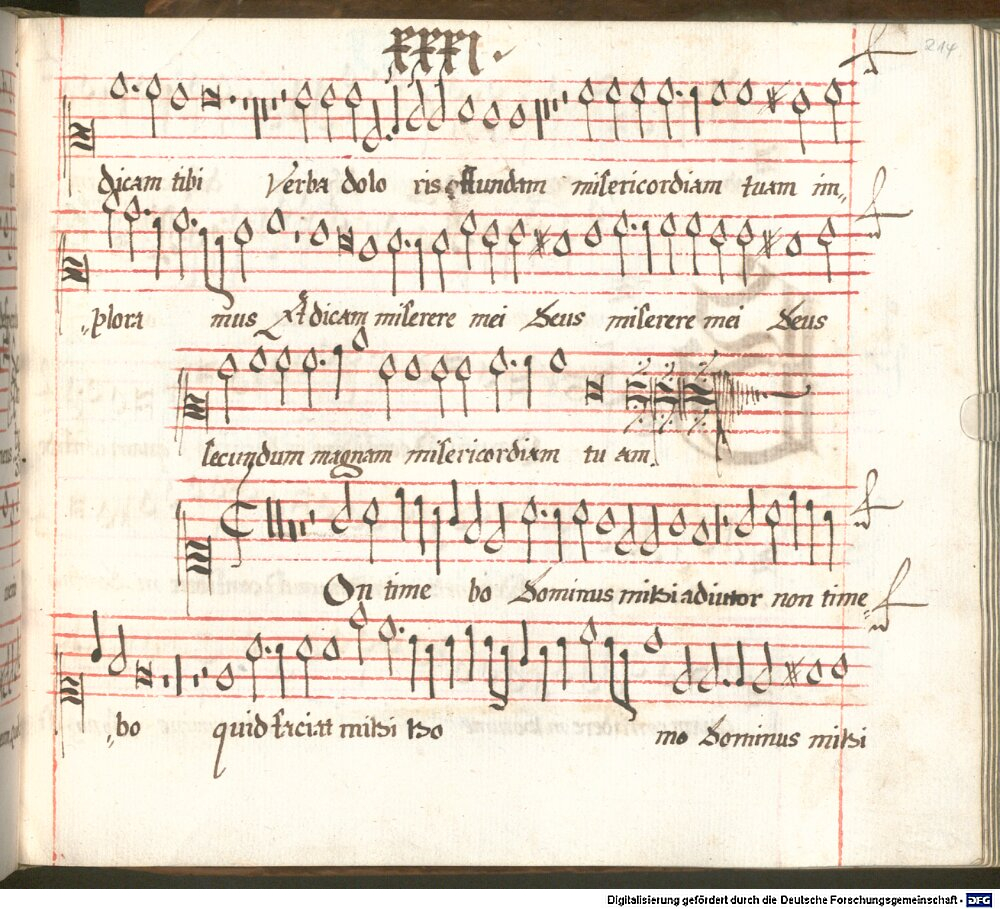 XXXI.
214
dicam tibi Verba dolo ris effundam misericordiam tuam im„
„plora mus Et dicam miserere mei Deus miserere mei Deus
secundum magnam misericordiam tu am.
On time bo Dominus mihi adiutor non time„
„bo quid faciat mihi ho mo Dominus mihi
Digitalisierung gefördert durch die Deutsche Forschungsgemeinschaft - DFG